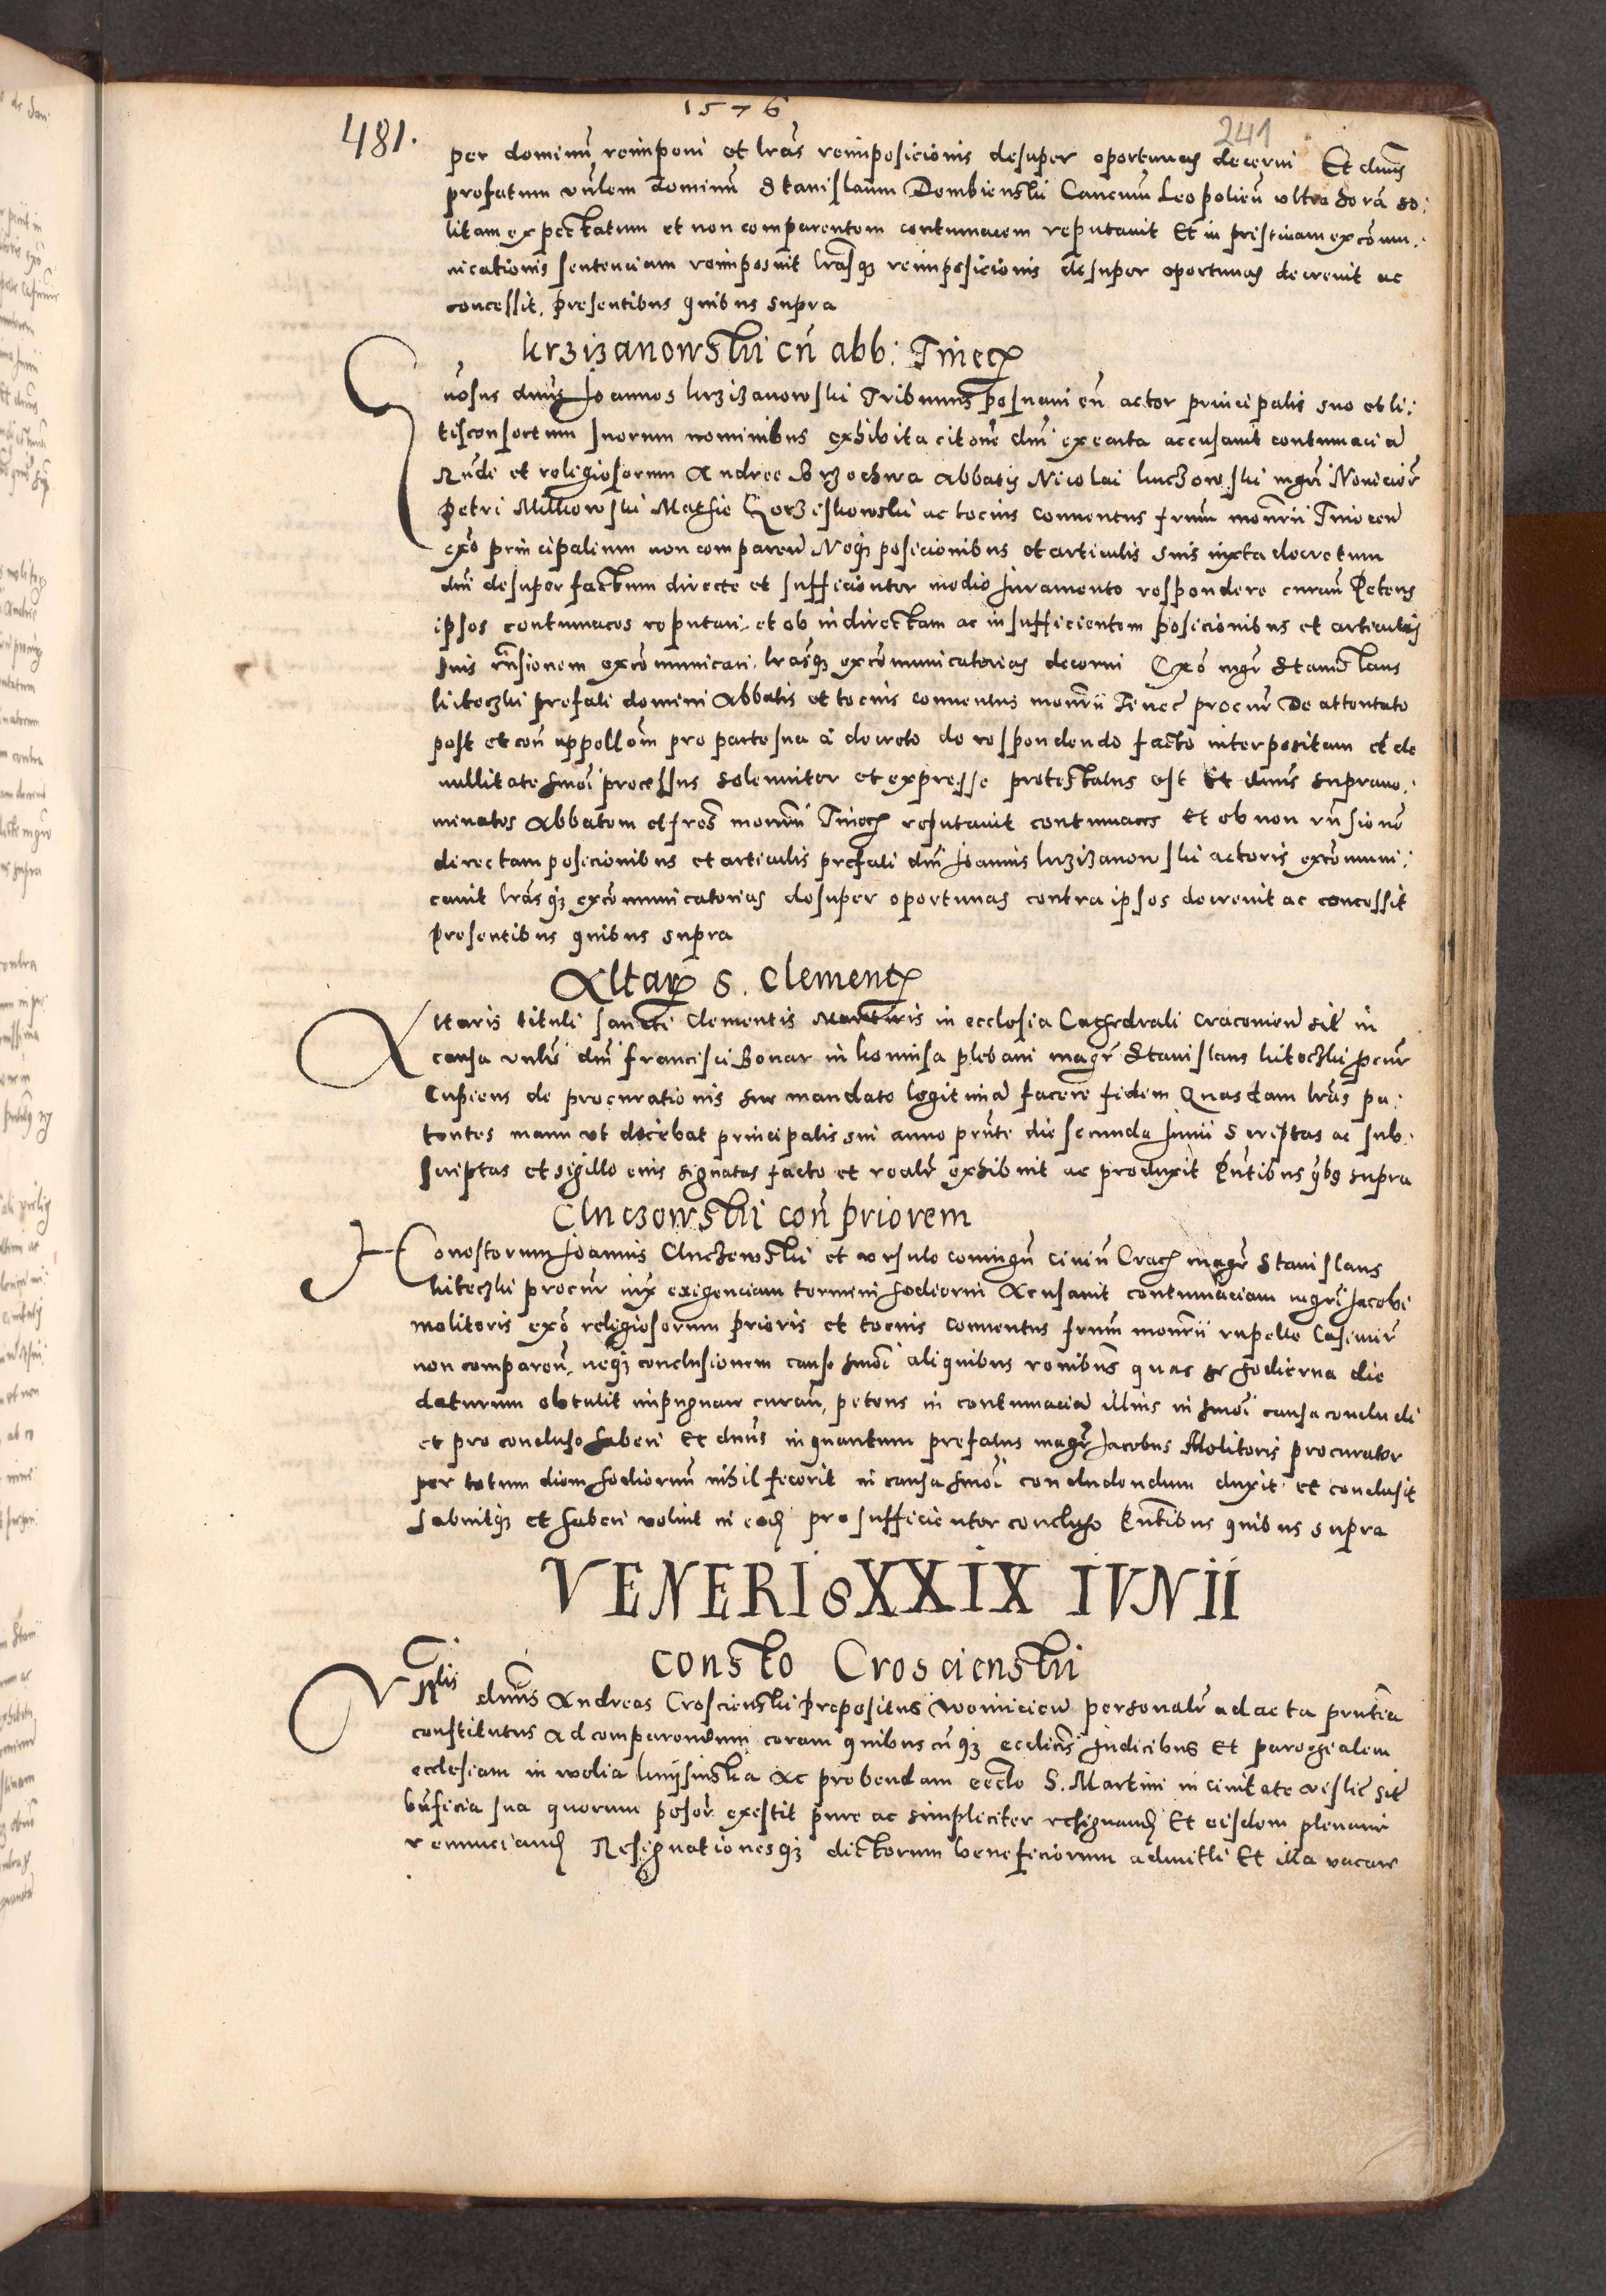 1576
481.
241
per dominũ reimponi et lrãs reimposicionis desuper oportunas decerni Et dnũs
prefatum vnlem dominũ Stanislaum Dombienski Cancrum Leopolien̄ vltra horā so:
litam expectatum et non comparentem contumacem reputauit Et in pristinam excõmu:
nicationis sentenciam reimposuit lrasq₃ reimposicionis desuper oportunas decreuit ac
concessit, presentibus quibus supra
krzizanowskii cñ abb: Tinecz
nosus dnũs Joannes krzizanowski Tribunus posnanien̄ actor principalis suo et li:
tisconsortum suorum nominibus exhibita citone dñi executa accusauit contumaciā
Rũdi et religiosorum Andree Brzochwa abbatis Nicolai kuczowski mgri Nouicior
Petri Milkowski Mathie Gorziskowski ac tocius conuentus frum monrii Tinecen̄
exõ principalium non comparen̄ Neq₃ posicionibus et articulis suis iuxta decretum
dñi desuper factum directe et sufficienter medio Juramento respondere curañ Petens
ipsos contumaces reputari et ob indirectam ac insufficientem posicionibus et articulis
suis rñsionem excõmunicari, lrasq₃ excõmunicatorias decerni Exõ mgr Stanislaus
kitoczki prefati domini Abbatis et tocius conuentus monrii Tinec procur̄ De attentato
post et coñ appellom pro parte sua á decreto de respondendo facto interpositam et de
nullitate hmõi processus solenniter et expresse protestatus est Et dnũs suprano:
minatos Abbatem et frẽs monrii Tinecz reputauit contumaces Et ob non rñsionẽ
directam posicionibus et articulis prefati dñi Joannis krzizanowski actoris excõmuni:
cauit lrasq₃ excõmunicatorias desuper oportunas contra ipsos decreuit ac concessit
presentibus quibus supra
Altar̄ S. Clement̄
Altaris tituli sancti Clementis Martiris in ecclesia Cathedrali Cracouien̄ sit̄ in
causa vnlis dñi francisci Bonar in koniusa plebani magr̄ Stanislaus kitoczki pcur̄
Cupiens de procurationis sue mandato legitimā facere fidem Quasdam lrãs pa:
tentes manu vt dicebat principalis sui anno pñte die secunda Junii Scriptas ac sub:
scriptas et sigillo eius signatas facto et realr̄ exhibuit ac produxit Pñtibus qbꝫ supra
Cluczowskii coñ priorem
Honestorum Joannis Cluczowski et vrsule coniugũ ciuiũ Crac magr̄ Stanislaus
kiteczki procur̄ iux exigenciam termini hodierni Acusauit contumaciam mgri Jacobi
molitoris exõ religiosorum prioris et tocius conuentus frum monrii rupelle Casimir̄
non comparen̄, neq₃ conclusionem cause hmõi aliquibus ronibus quas se hodierna die
daturum obtulit impugnare curañ, petens in contumaciā illius in hmõi causa concludi
et pro concluso haberi Et dnũs in quantum prefatus magr̄ Jacobus Molitoris procurator
per totum diem hodiernũ nihil fecerit in causa hmõi concludendum duxit et conclusit
habuitq₃ et haberi voluit in ead pro sufficienter concluso Pñtibus quibus supra
VENERIS XXIX IVNII
consto Croscienskii
Vnlis dnũs Andreas Croscienski prepositus woiniciens personalr̄ ad acta pñtia
constitutus Ad comparendum coram quibuscũq₃ ecclicis Judicibus Et parochialem
ecclesiam in wolia kniisinska Ac prebendam eccle S. Martini in ciuitate vislic̄ sit̄
bñficia sua quorum posor̄ exestit pure ac simpliciter resignand Et eisdem plenarie
renunciand Resignationesq₃ dictorum beneficiorum admitti Et illa vacare